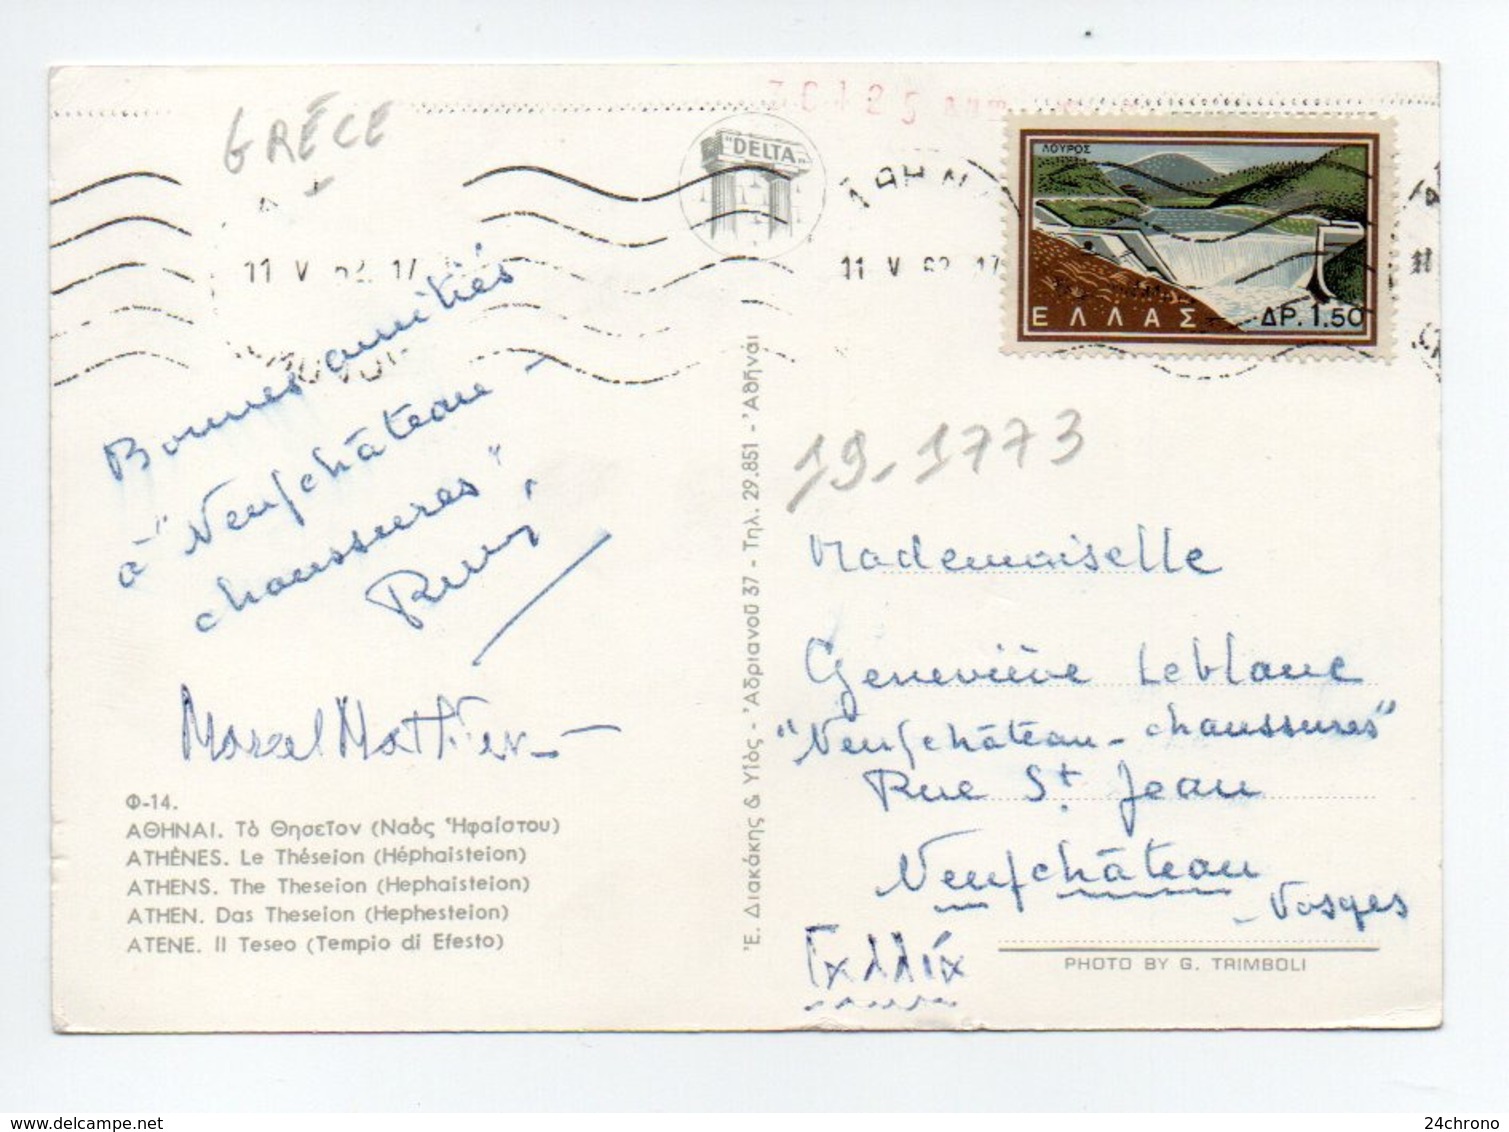 GRÈCE
"DELTA"
ΛΟΥΡΟΣ
ΕΛΛΑΣ ΔΡ. 1.50
11 V 62 17
11 V 62 17
Bonnes amitiés
à "Neufchâteau -
chaussures"
Marcel Mathieu
Φ-14.
ΑΘΗΝΑΙ. Τὸ Θησεῖον (Ναὸς Ἡφαίστου)
ATHÈNES. Le Théseion (Héphaisteion)
ATHENS. The Theseion (Hephaisteion)
ATHEN. Das Theseion (Hephesteion)
ATENE. Il Teseo (Tempio di Efesto)
Ἐ. Διακάκης & Υἱὸς - Ἀδριανοῦ 37 - Τηλ. 29.851 - Ἀθῆναι
19-1773
Mademoiselle
Geneviève Leblanc
"Neufchâteau - chaussures"
Rue St Jean
Neufchâteau
- Vosges
Γαλλία
PHOTO BY G. TRIMBOLI
24chrono